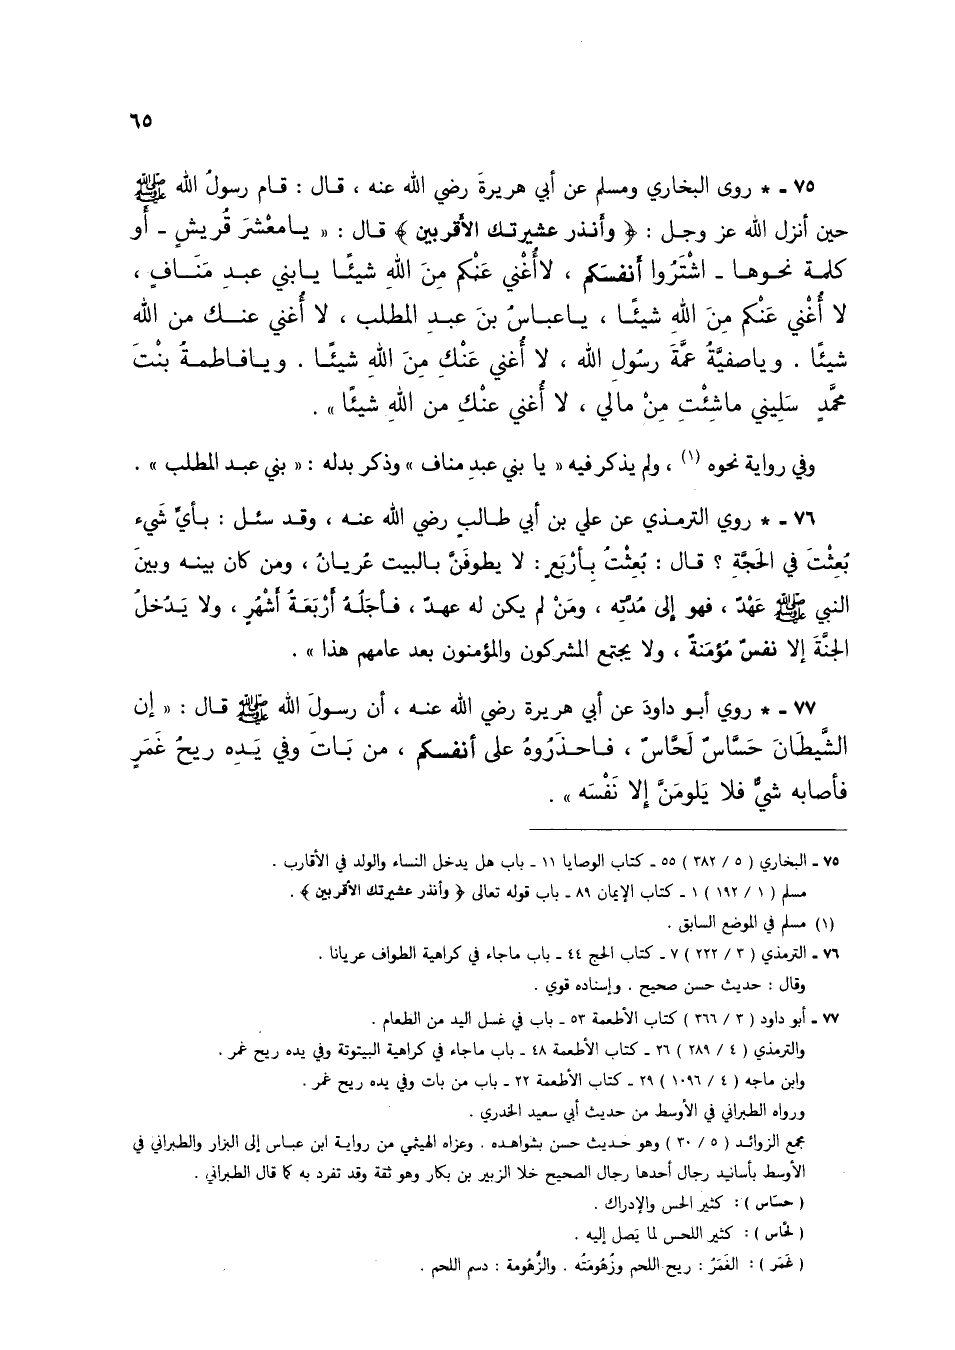 ٦٥
٧٥ - * روى البخاري ومسلم عن أبي هريرةَ رضي الله عنه ، قال : قـام رسولُ الله ﷺ
حين أنزل الله عز وجـل : ﴿ وأنذر عشيرتـك الأقربين ﴾ قـال : « يـامعْشرَ قُريشٍ - أو
كلمة نحوهـا - اشْتَرُوا أنفسَكم ، لاأُغْني عَنْكم مِنَ اللهِ شيئًـا يـابني عبدِ مَنَـافٍ ،
لا أُغْني عَنْكم مِنَ اللهِ شيئًـا ، يـاعبـاسُ بنَ عبـدِ المطلب ، لا أُغني عنــك من الله
شيئًا . وياصفيَّةُ عمَّةَ رسُول الله ، لا أُغني عَنْكِ مِنَ اللهِ شيئًـا . ويـافـاطمـةُ بنْتَ
محمَّدٍ سَلِيني ماشِئْتِ مِنْ مالي ، لا أُغني عنْكِ من اللهِ شيئًا » .
وفي رواية نحوه (١) ، ولم يذكر فيه « يا بني عبدِ مناف » وذكر بدله : « بني عبـد المطلب » .
٧٦ - * روي الترمـذي عن علي بن أبي طـالبٍ رضي الله عنـه ، وقـد سئـل : بـأيِّ شَيء
بُعثْتَ في الحَجَّةِ ؟ قـال : بُعثْتُ بـأرْبَعٍ : لا يطوفَنَّ بـالبيت عُريـانٌ ، ومن كان بينـه وبينَ
النبي ﷺ عَهْدٌ ، فهو إلى مُدَّتِه ، ومَنْ لم يكن له عهـدٌ ، فـأجَلُـهُ أَرْبَعَـةُ أشْهُرٍ ، ولا يَـدْخلُ
الجنَّةَ إلا نفسٌ مُؤمَنةٌ ، ولا يجتمع المشركون والمؤمنون بعد عامهم هذا » .
٧٧ - * روي أبـو داودَ عن أبي هريرة رضي الله عنـه ، أن رسـولَ الله ﷺ قـال : « إن
الشَّيطَانَ حَسَّاسٌ لَحَّاسٌ ، فـاحذَرُوهُ على أنفسـكم ، من بَـاتَ وفي يَـدِه ريحُ غَمَرٍ
فأصابه شيٌّ فلا يَلومَنَّ إلا نَفْسَه » .
٧٥ - البخاري ( ٥ / ٣٨٢ ) ٥٥ - كتاب الوصايا ١١ - باب هل يدخل النساء والولد في الأقارب .
مسلم ( ١ / ١٩٢ ) ١ - كتاب الإيمان ٨٩ - باب قوله تعالى ﴿ وأنذر عشيرتك الأقربين ﴾ .
(١) مسلم في الموضع السابق .
٧٦ - الترمذي ( ٣ / ٢٢٢ ) ٧ - كتاب الحج ٤٤ - باب ماجاء في كراهية الطواف عريانا .
وقال : حديث حسن صحيح . وإسناده قوي .
٧٧ - أبو داود ( ٣ / ٣٦٦ ) كتاب الأطعمة ٥٣ - باب في غسل اليد من الطعام .
والترمذي ( ٤ / ٢٨٩ ) ٢٦ - كتاب الأطعمة ٤٨ - باب ماجاء في كراهية البيتوتة وفي يده ريح غمر .
وابن ماجه ( ٤ / ١٠٩٦ ) ٢٩ - كتاب الأطعمة ٢٢ - باب من بات وفي يده ريح غمر .
ورواه الطبراني في الأوسط من حديث أبي سعيد الخدري .
مجمع الزوائـد ( ٥ / ٣٠ ) وهو حـديث حسن بشواهـده . وعزاه الهيثمي من روايـة ابن عبـاس إلى البزار والطبراني في
الأوسط بأسانيد رجال أحدها رجال الصحيح خلا الزبير بن بكار وهو ثقة وقد تفرد به كما قال الطبراني .
( حسّاس ) : كثير الحس والإدراك .
( لحّاس ) : كثير اللحس لما يَصل إليه .
( غَمَر ) : الغَمَرُ : ريح اللحم وزُهُومَتُه . والزُّهُومة : دسم اللحم .